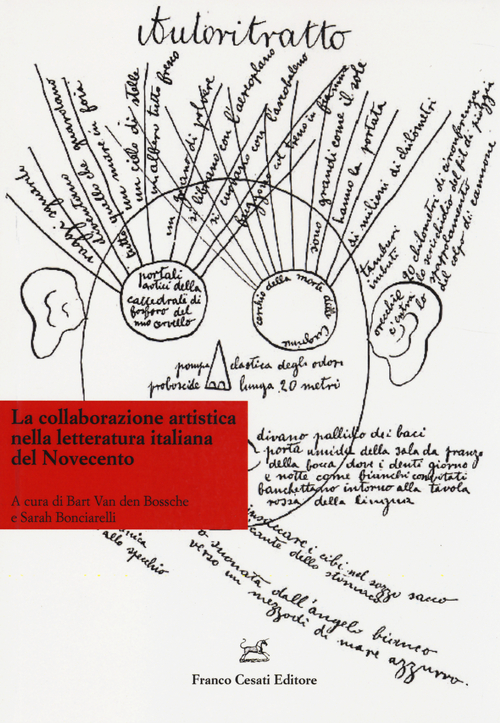 Autoritratto
raggi sguardi
diventano
tutto quello che guardano
un mare in fiore
un cielo di stelle
un albero tutto fresco
un grano di polvere
si librano con l'aeroplano
si curvano con l'arcobaleno
fuggono col treno in fiamme
sono grandi come il sole
hanno la portata
di milioni di chilometri
tamburi
imbuti
20 chilometri di circonferenza
lo scricchiolio del filo di
del colpo di cannone
orecchie
c'entra
lo
portali
ottici della
cattedrale di
fosforo del
mio cervello
cerchio della morte delle
pompa elastica degli odori
proboscide lunga 20 metri
La collaborazione artistica
nella letteratura italiana
del Novecento
A cura di Bart Van den Bossche
e Sarah Bonciarelli
divano pallido dei baci
porta umida della sala da pranzo
della bocca dove i denti giorno
e notte come bianchi convitati
banchettano intorno alla tavola
rossa della lingua
i cibi nel sozzo sacco
dello stomaco
allo specchio
suonata dall'angelo bianco
verso un mezzodì di mare azzurro.
Franco Cesati Editore